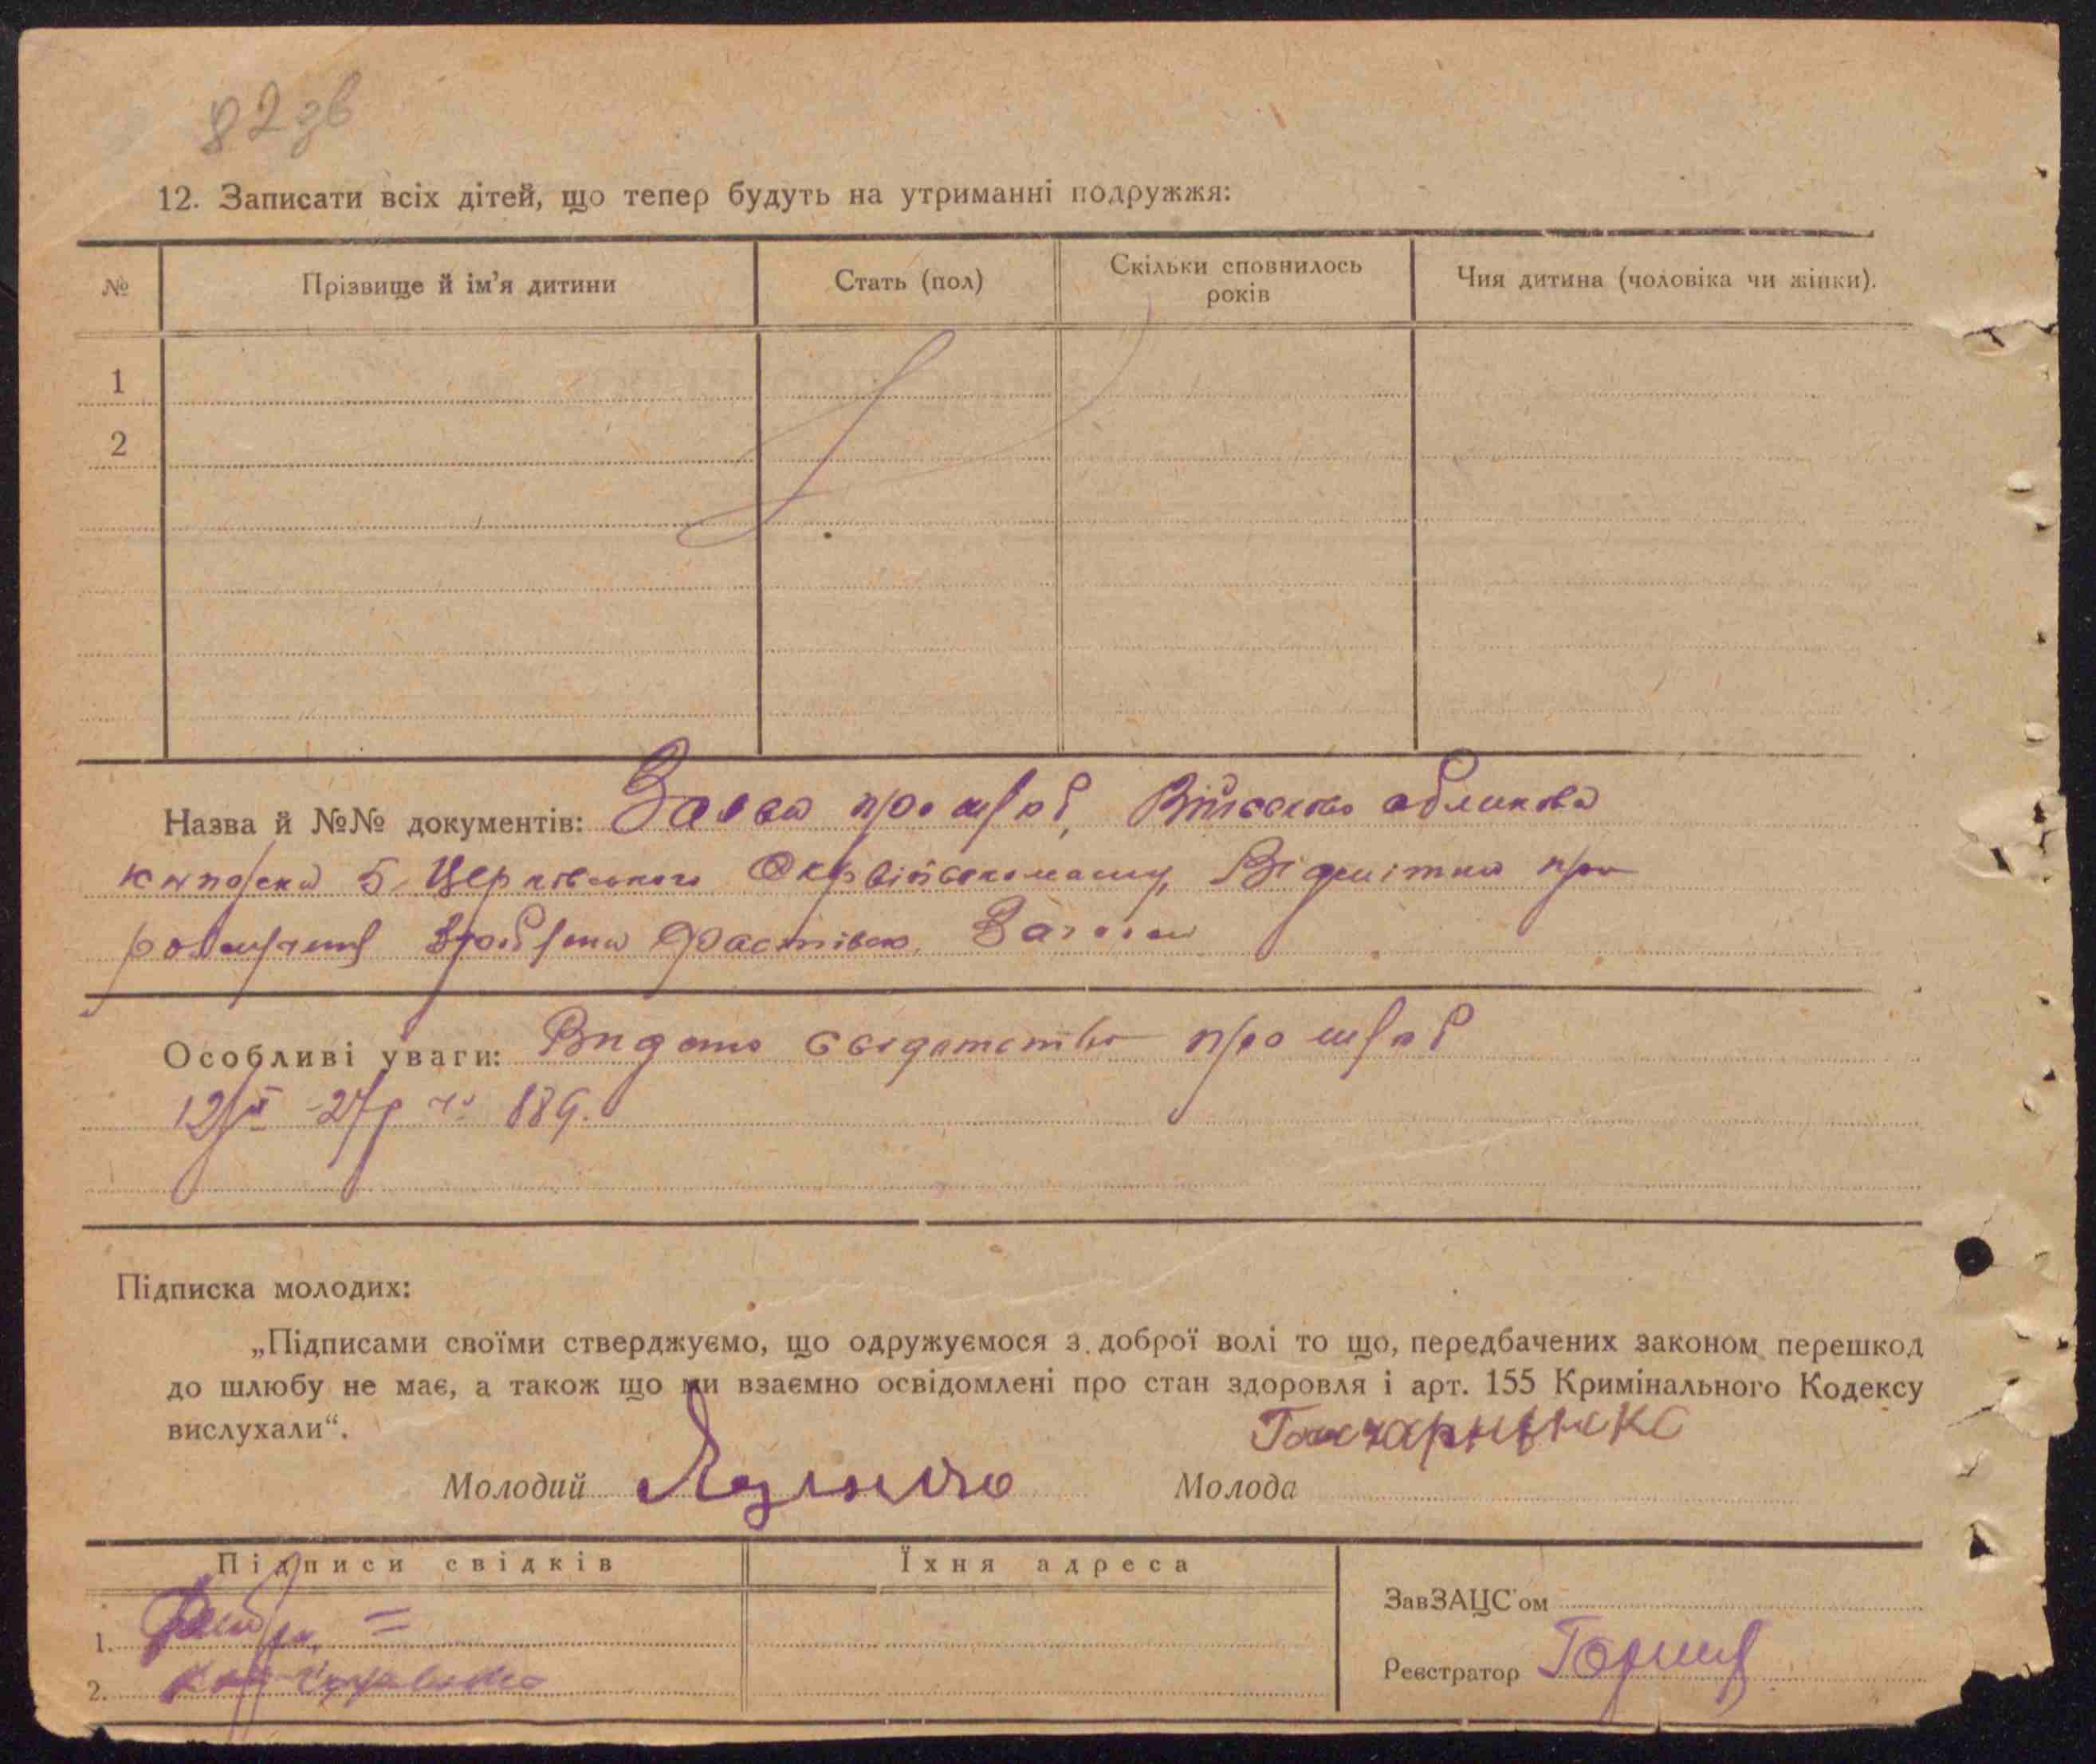 82 зв
12. Записати всіх дітей, що тепер будуть на утриманні подружжя:
№ Прізвище й ім’я дитини Стать (пол) Скільки сповнилось років Чия дитина (чоловіка чи жінки).
1
2
Назва й №№ документів: Заява про шлюб, Військово обликова
книжка Б. Церківського Окрвійськомату, Відмітка про
Особливі уваги: Видано свідотство про шлюб
12/ІІ -27 р № 889.
Підписка молодих:
„Підписами своїми стверджуємо, що одружуємося з доброї волі то що, передбачених законом перешкод
до шлюбу не має, а також що ми взаємно освідомлені про стан здоровля і арт. 155 Кримінального Кодексу
вислухали“.
Молодий Молода
Підписи свідків Їхня адреса
ЗавЗАЦС’ом
1.
Реєстратор
2.